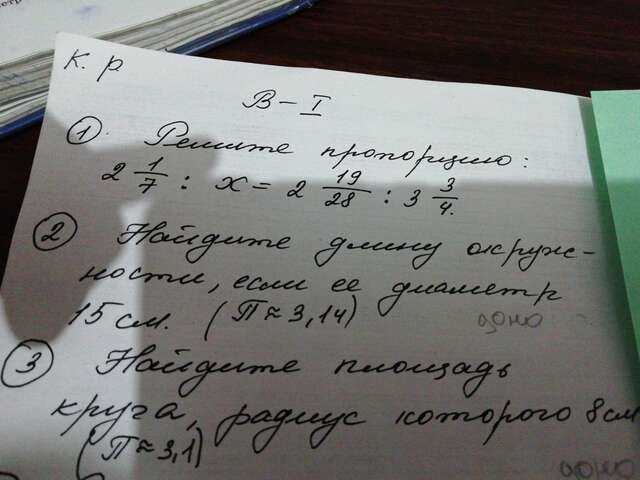 К. р.
В – I
① Решите пропорцию:
2 1/7 : x = 2 19/28 : 3 3/4.
② Найдите длину окруж-
ности, если ее диаметр
15 см. (П ≈ 3,14)
③ Найдите площадь
круга, радиус которого 8 см
(П ≈ 3,1)